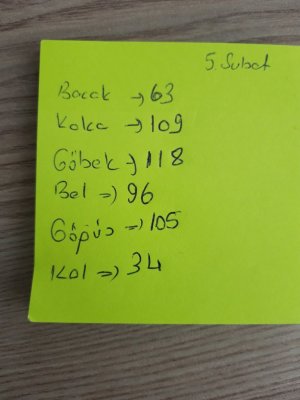 5. Subat
Bacak → 63
Kalca → 109
Göbek → 118
Bel → 96
Göğüs → 105
Kol → 34